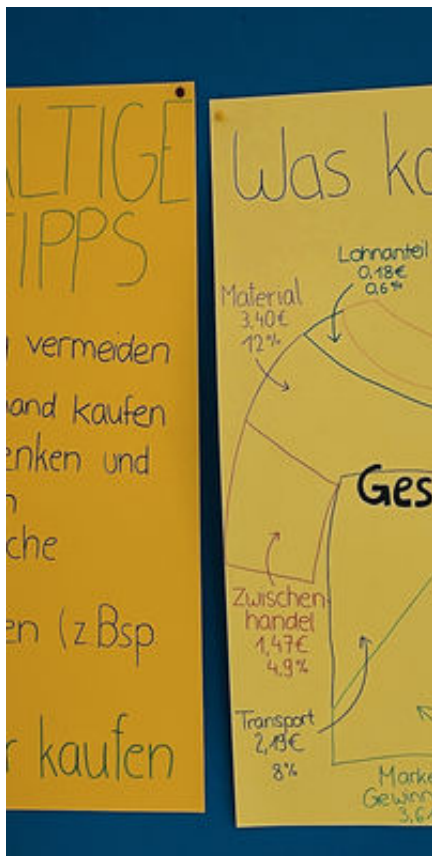 ALTIGE
TIPPS
vermeiden
and kaufen
enken und
n
che
en (z.Bsp
r kaufen
Was ko
Lohnanteil
0,18€
0,6%
Material
3,40€
12%
Ges
Zwischen-
handel
1,47€
4,9%
Transport
2,19€
8%
Marke
Gewinn
3,6